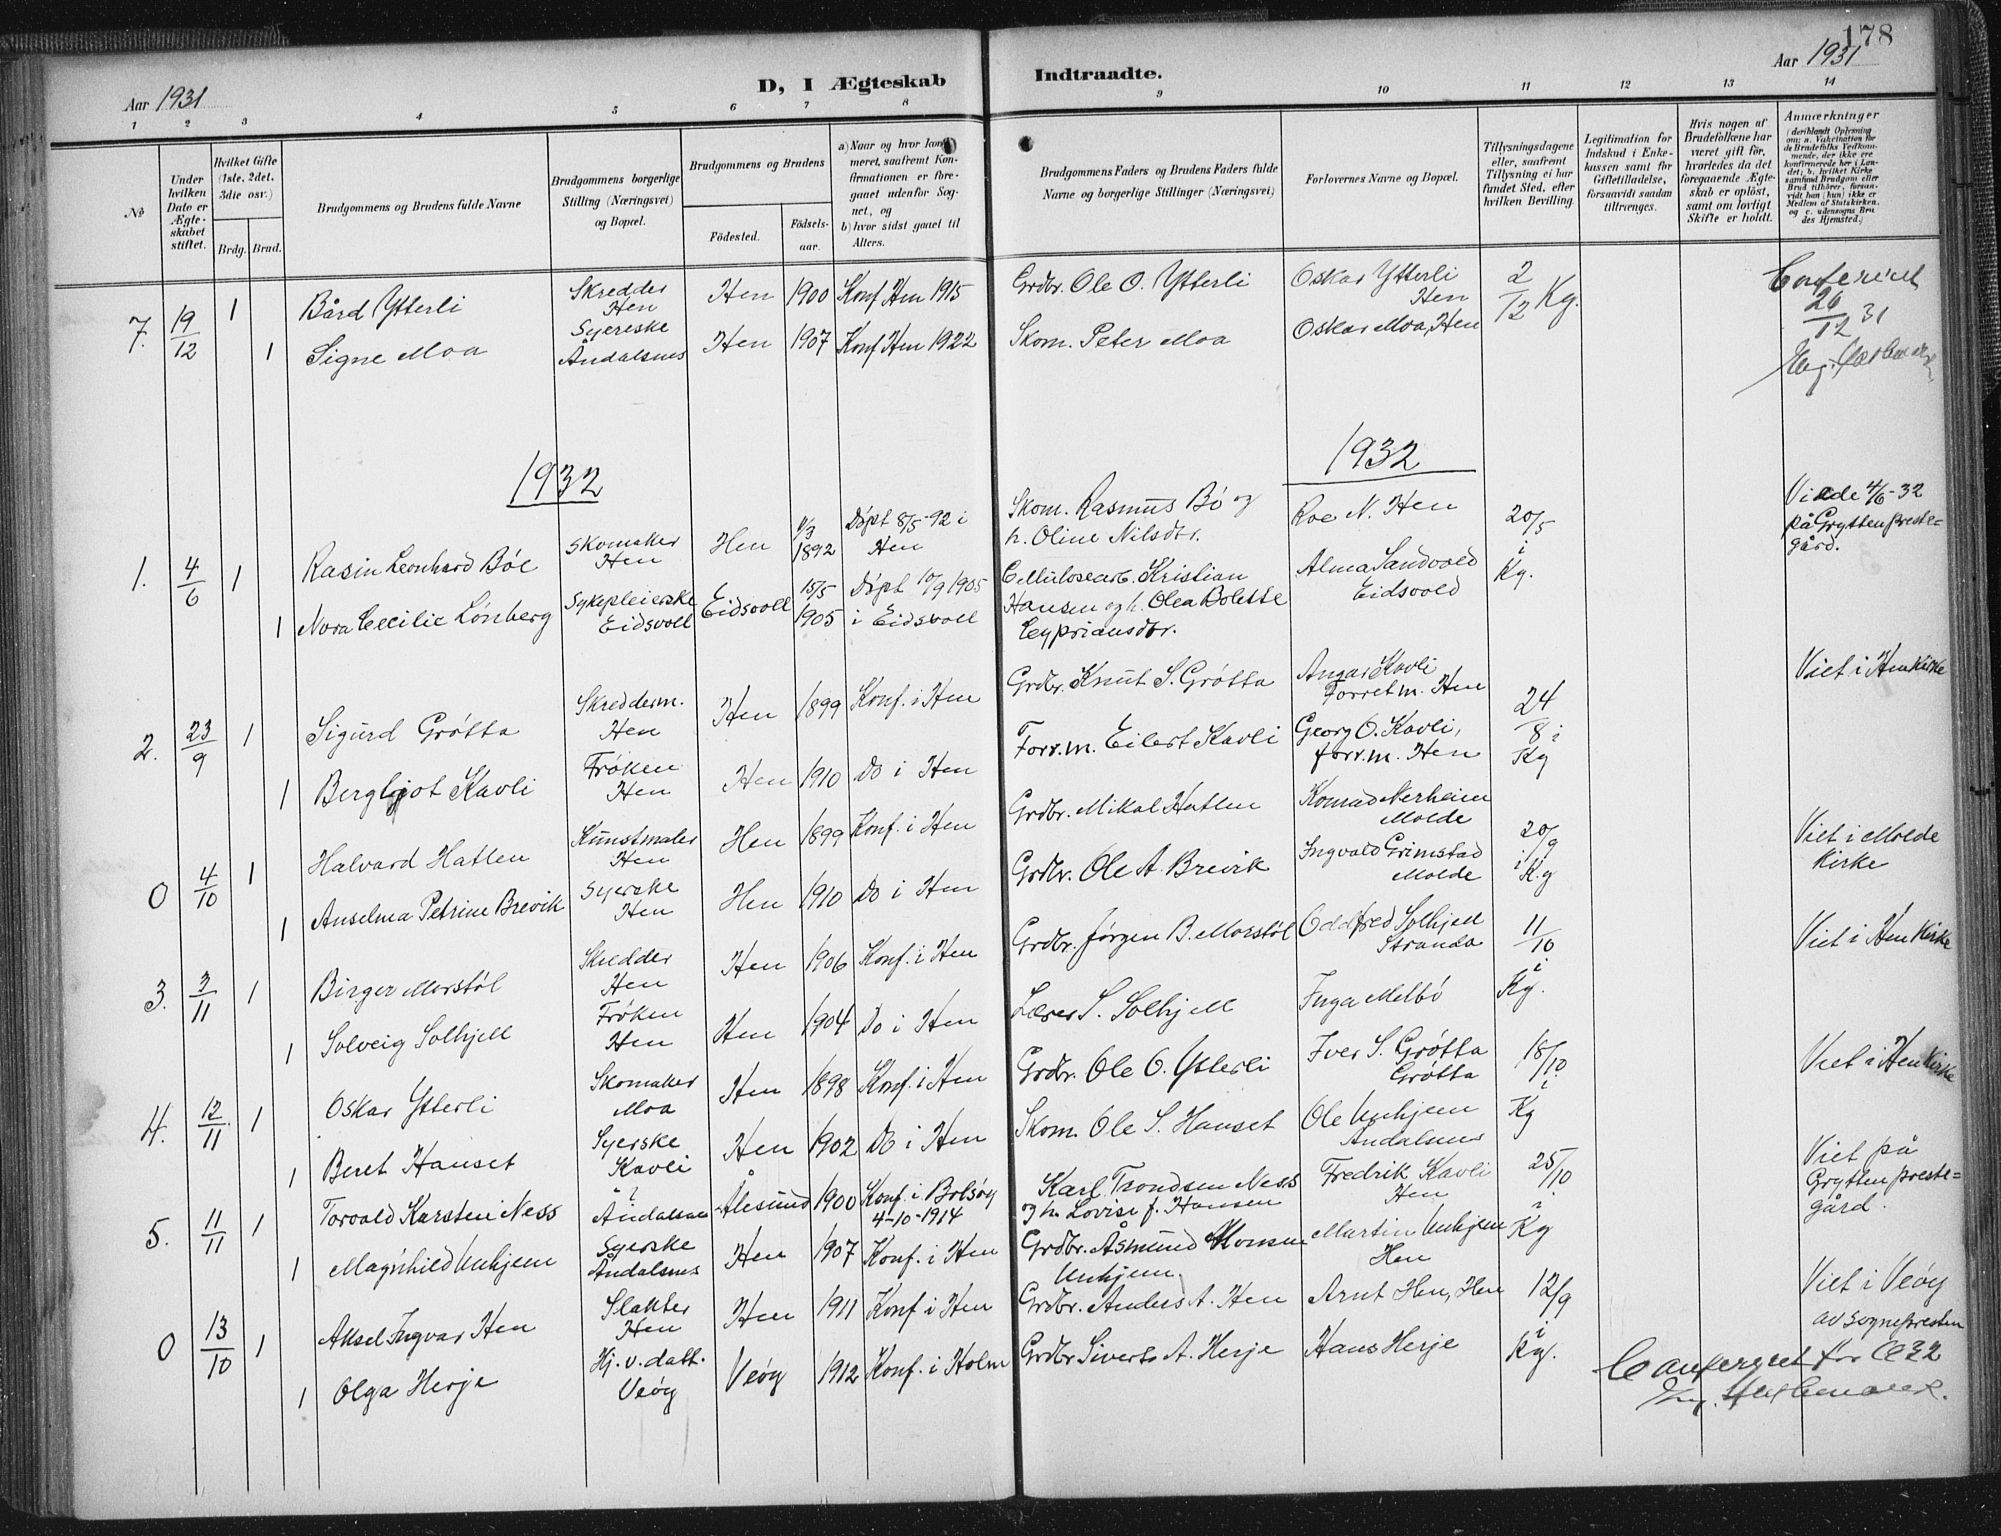 178
Aar 1931
D, I Ægteskab Indtraadte.
Aar 1931
1 2 3 4 5 6 7 8 9 10 11 12 13 14
No
Under hvilken Dato er Ægteskabet stiftet.
Hvilket Gifte (1ste, 2det, 3die osv.)
Brdg. Brud.
Brudgommens og Brudens fulde Navne
Brudgommens borgerlige Stilling (Næringsvei) og Bopæl.
Brudgommens og Brudens
Fødested.
Fødselsaar.
a) Naar og hvor konfirmeret, saafremt Konfirmationen er foregaaet udenfor Sognet, og
b) hvor sidst gaaet til Alters.
Brudgommens Faders og Brudens Faders fulde Navne og borgerlige Stillinger (Næringsvei)
Forlovernes Navne og Bopæl.
Tillysningsdagene eller, saafremt Tillysning ei har fundet Sted, efter hvilken Bevilling.
Legitimation for Indskud i Enkekassen samt for Giftetilladelse, forsaavidt saadan tiltrænges.
Hvis nogen af Brudefolkene har været gift før, hvorledes da det foregaaende Ægteskab er opløst, samt om lovligt Skifte er holdt.
Anmærkninger
(deriblandt Oplysning om: a. Vakcination for de Brudefolks Vedkommende, der ikke ere konfirmerede her i Landet; b. hvilket Kirkesamfund Brudgom eller Brud tilhører, forsaavidt han (hun) ikke er Medlem af Statskirken, og c. udensogns Brudes Hjemsted.)
7. 19/12 1 Bård Ytterli Skredder Hen Hen 1900 Konf Hen 1915 Grdbr. Ole O. Ytterli Oskar Ytterli Hen 2/12 Kg.
1 Signe Moa Syerske Åndalsnes Hen 1907 Konf Hen 1922 Skom. Peter Moa Oskar Moa, Hen
20/12 31
1932 1932
1. 4/6 1 Rasin Leonhard Böe Skomaker Hen Hen 1892 Døpt 8/5-92 i Hen Skom. Rasmus Bö og h. Oline Nilsdtr. Roe N. Hen 20/5 i Kg. Viede 4/6-32 på Grytten prestegård.
1 Nora Cecilie Lönberg Sykepleierske Eidsvoll Eidsvoll 15/5 1905 Døpt 10/9 1905 i Eidsvoll Cellulosearb. Kristian Hansen og h. Olea Bolette Cypriansdtr. Alma Sandvold Eidsvold
2. 23/9 1 Sigurd Grötta Skredderm. Hen Hen 1899 Konf. i Hen Grdbr. Knut S. Grötta Angar Kavli Forretm. Hen 24/8 i Kg Viet i Hen Kirke
1 Bergljot Kavli Fröken Hen Hen 1910 Do i Hen Forr.m. Eilert Kavli Georg O. Kavli, forr.m. Hen
0 4/10 1 Halvard Hatlen Kunstmaler Hen Hen 1899 Konf. i Hen Grdbr. Mikal Hatlen Konrad Nerheim Molde 20/9 i Kg Viet i Molde Kirke
1 Anselma Petrine Brevik Syerske Hen Hen 1910 Do i Hen Grdbr. Ole A. Brevik Ingvald Grimstad Molde
3. 3/11 1 Birger Morstöl Skredder Hen Hen 1906 Konf. i Hen Grdbr. Jörgen B. Morstöl Oddfred Solhjell Stranda 11/10 i Kg. Viet i Hen Kirke
1 Solveig Solhjell Fröken Hen Hen 1904 Do i Hen Lærer S. Solhjell Inga Melbö
4. 12/11 1 Oskar Ytterli Skomaker Moa Hen 1898 Konf. i Hen Grdbr. Ole O. Ytterli Iver S. Grötta Grötta 18/10 i Kg Viet i Hen Kirke
1 Beret Hanset Syerske Kavli Hen 1902 Do i Hen Skom. Ole S. Hanset Ole Unhjem Åndalsnes
5. 11/11 1 Torvald Karsten Ness ? Åndalsnes Ålesund 1900 Konf. i Bolsöy 4-10-1914 Karl Trondsen Ness og h. Lovise f. Hansen Fredrik Kavli Hen 25/10 i Kg Viet på Grytten prestegård.
1 Magnhild Unhjem Syerske Åndalsnes Hen 1907 Konf. i Hen Grdbr. Åsmund Monsen Unhjem. Martin Unhjem Hen
0 13/10 1 Aksel Ingvar Hen Slakter Hen Hen 1911 Konf i Hen Grdbr. Anders A. Hen Arnt Hen, Hen 12/9 i Kg. Viet i Veöy av sognepresten
1 Olga Herje Hj. v. datt. Veöy Veöy 1912 Konf. i Holm Grdbr Sivert A. Herje Hans Herje